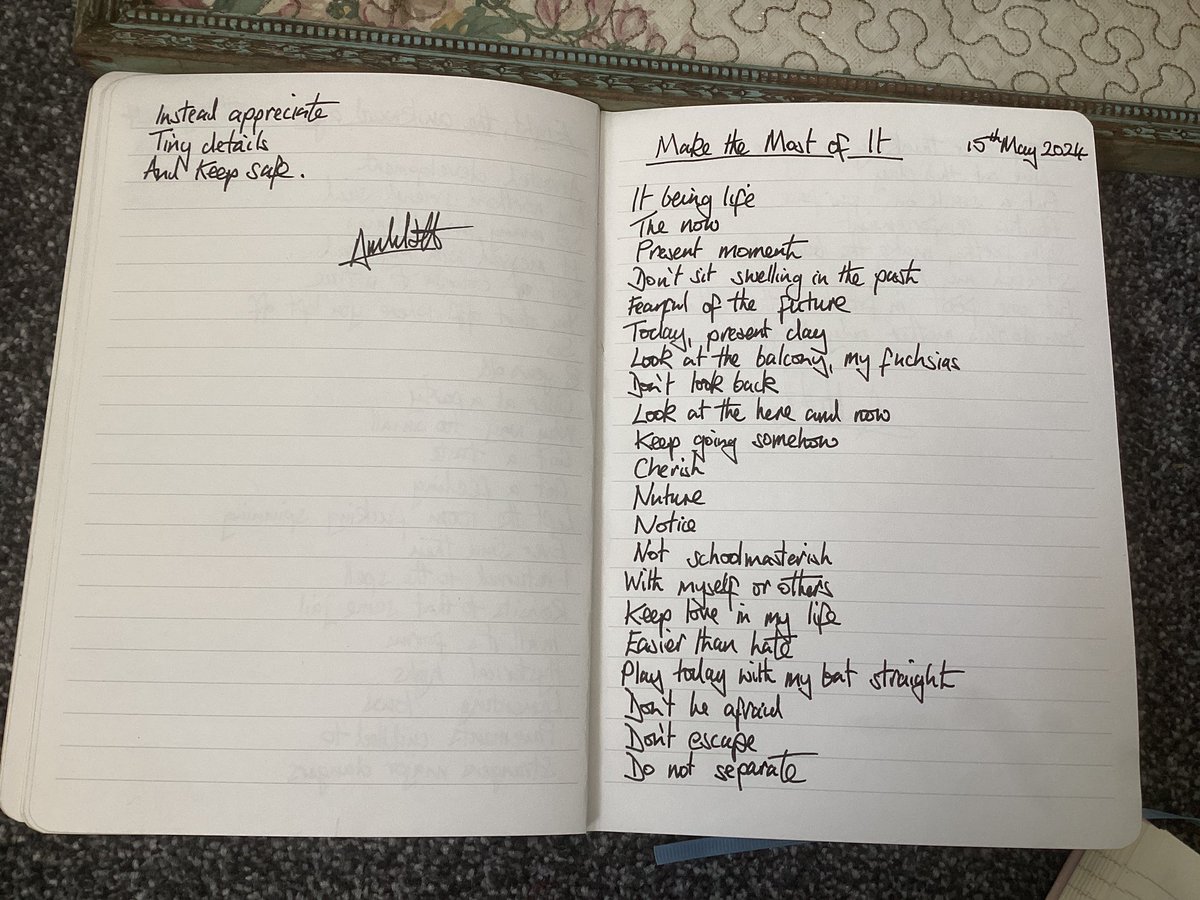 Instead appreciate
Tiny details
And Keep safe.
Make the Most of It 15th May 2024
It being life
The now
Present moment
Don't sit swelling in the past
Fearful of the future
Today, present day
Look at the balcony, my fuchsias
Don't look back
Look at the here and now
Keep going somehow
Cherish
Nuture
Notice
Not schoolmasterish
With myself or others
Keep love in my life
Easier than hate
Play today with my bat straight
Don't be afraid
Don't escape
Do not separate